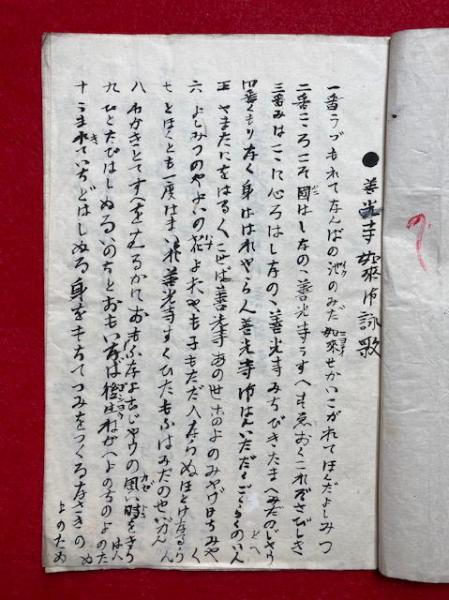 ●善光寺如來御詠歌
一番うづもれてなんばの池のみだ如來せかいこがれてほんだよしみつ
二番こころこそ國はしなの、善光寺うすへすゑおくこれぞさびしき
三番みはここに心ろはしなの、善光寺みちびきたまへみだのじやうどへ
四番くもりなく身ははれやらん善光寺御はんいただくごくらくのいん
五 やまたにをはるく こせば善光寺あの世ホのよのみやげはちみや
六 よしみつのやよいの花 よおやも子もただ入ならぬほとけなるらく
七 とほくとも一度はまいれ善光寺すくひたもふはみだのせいがん
八 れかきとてすへを かにおもふなよ じやうの風い時をきらはん
九 ひとたびはしぬるいのちとおもいなば後生ねがへよのちのよのため
十 うまれきていちどはしぬる身をもちてつみをつくるなさきのよのため